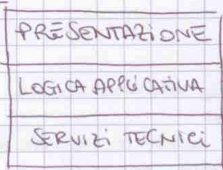 PRESENTAZIONE
LOGICA APPLICATIVA
SERVIZI TECNICI